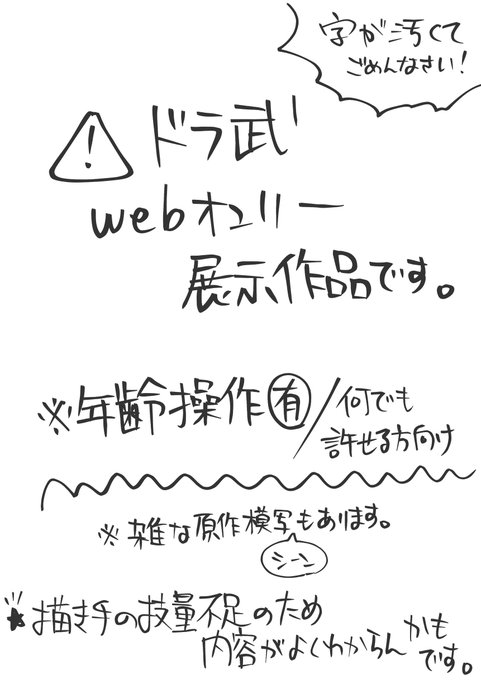 字が汚くて
ごめんなさい!
! ドラ武
webオンリー
展示作品です。
※年齢操作有/何でも
許せる方向け
※雑な原作模写もあります。
シーン
★描き手の技量不足のため
内容がよくわからんかも
です。